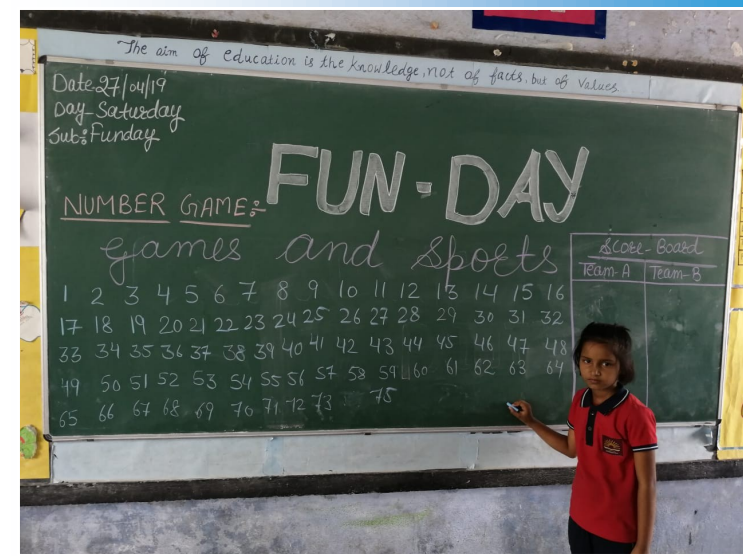 The aim of education is the knowledge, not of facts, but of values
Date-27/04/19
Day-Saturday
Sub:Funday
FUN-DAY
NUMBER GAME:-
games and sports
Score-Board
Team-A Team-B
1 2 3 4 5 6 7 8 9 10 11 12 13 14 15 16
17 18 19 20 21 22 23 24 25 26 27 28 29 30 31 32
33 34 35 36 37 38 39 40 41 42 43 44 45 46 47 48
49 50 51 52 53 54 55 56 57 58 59 60 61 62 63 64
65 66 67 68 69 70 71 72 73 75